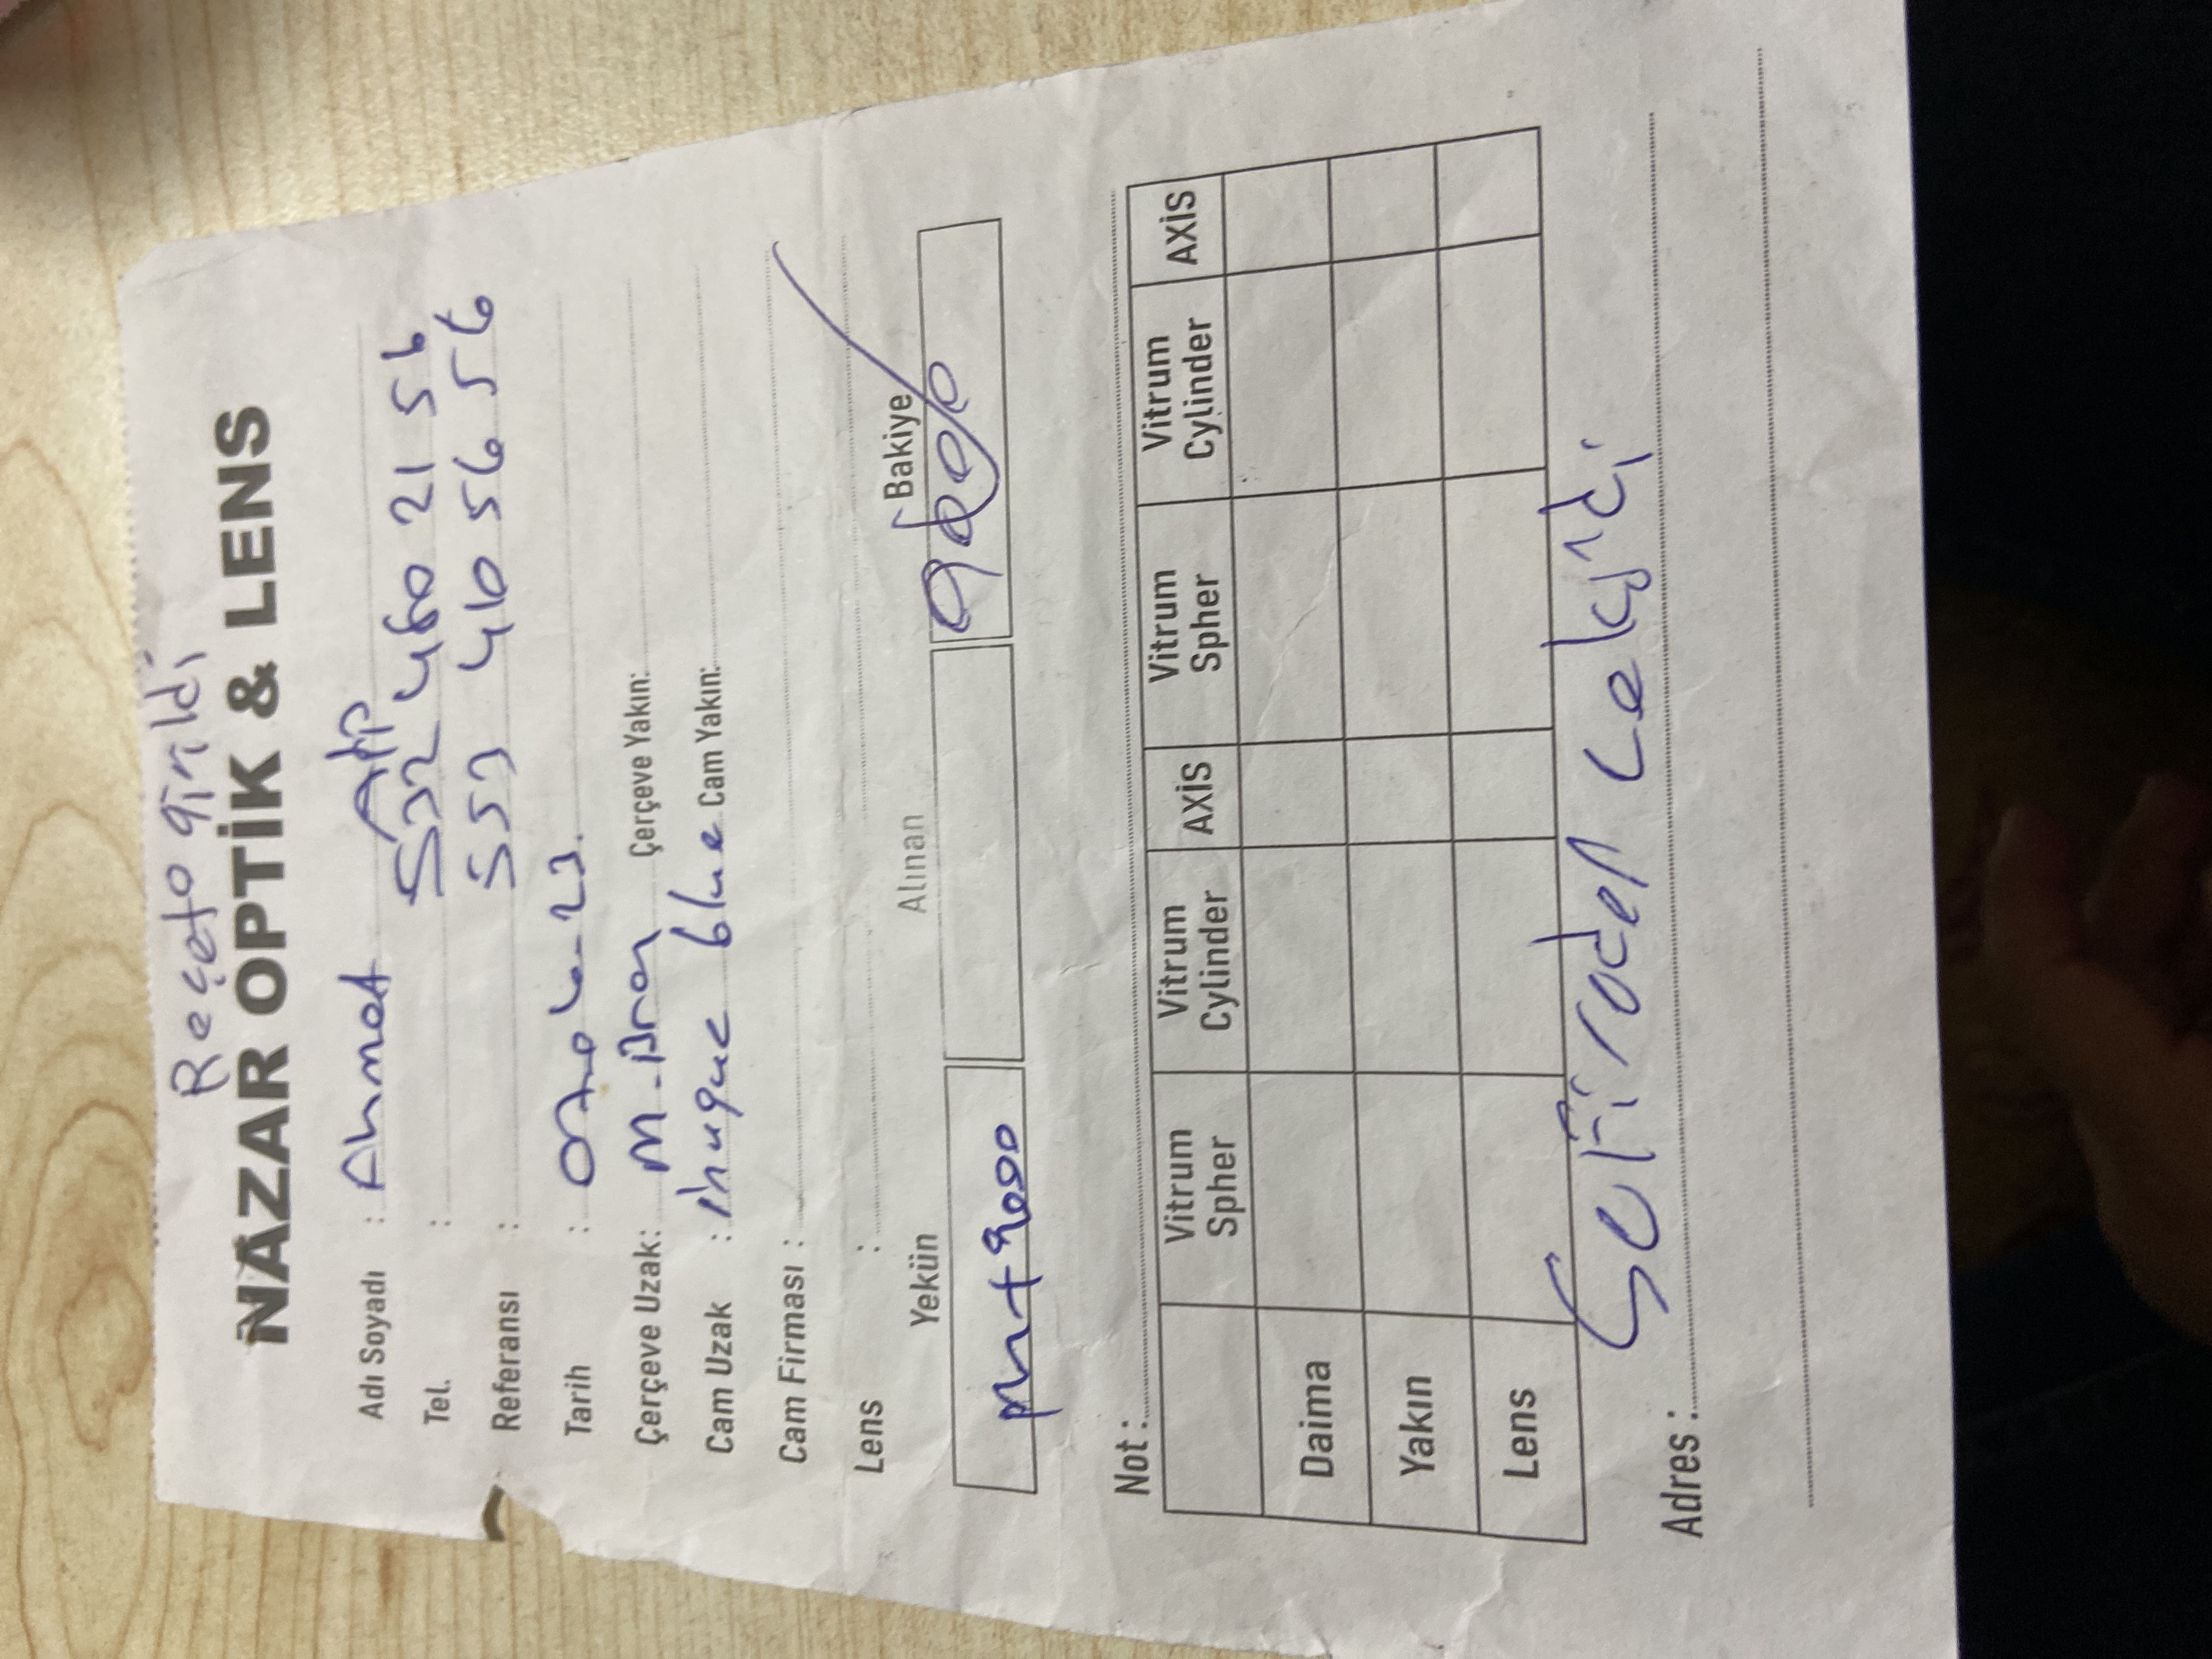 Reçete girildi
NAZAR OPTİK & LENS
Adı Soyadı : Ahmet Alp
Tel. : 532 480 21 56
Referansı : 553 410 56 56
Tarih : 07.06.23.
Çerçeve Uzak: M. Çerçeve Yakın:
Cam Uzak : blue Cam Yakın:
Cam Firması :
Lens :
Yekün Alınan Bakiye
+9000 9000
Not :
Vitrum Spher Vitrum Cylinder AXİS Vitrum Spher Vitrum Cylinder AXİS
Daima
Yakın
Lens
çekildi
Adres :